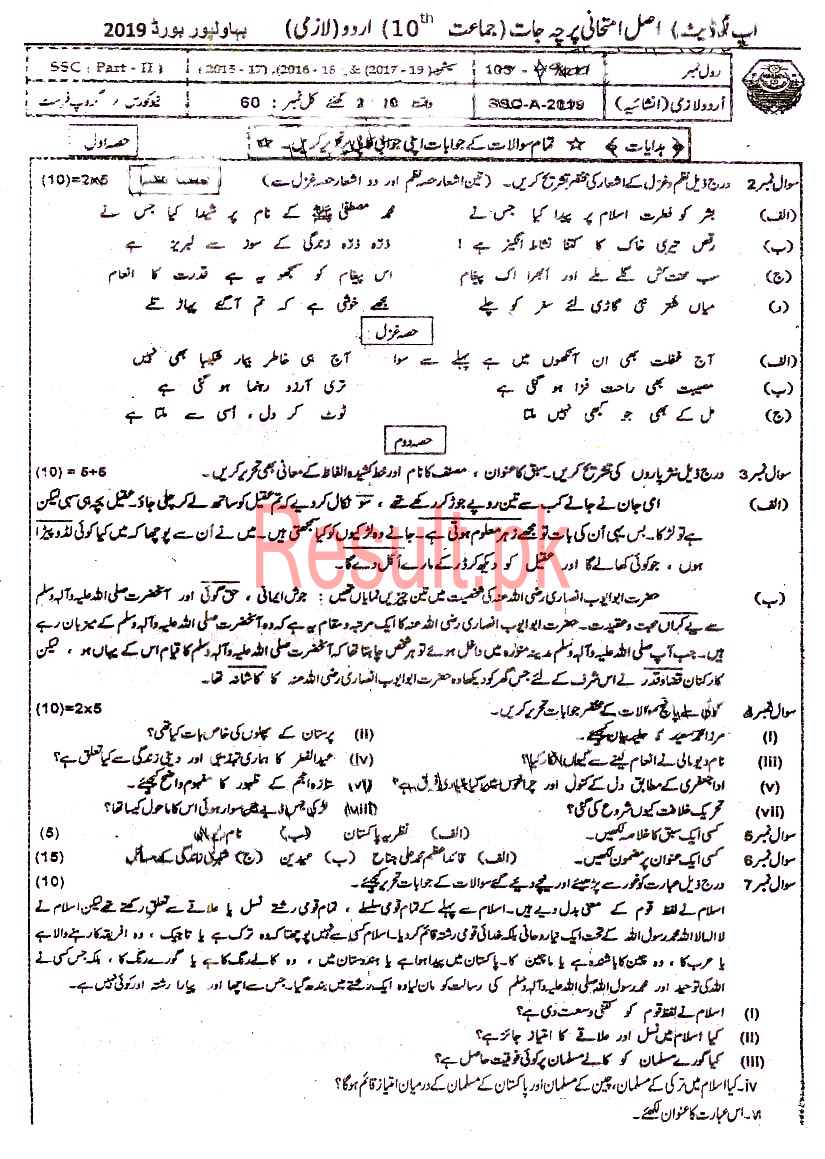 اپ ٹو ڈیٹ) اصل امتحانی پرچہ جات (جماعت 10th) اردو (لازمی) بہاولپور بورڈ 2019
رول نمبر سیشن (2015-17), (2016-18) & (2017-19) SSC (Part - II)
اُردو لازمی (انشائیہ) SSC-A-2019 وقت 2:10 گھنٹے کل نمبر : 60
﴿ ہدایات ﴾ ☆ تمام سوالات کے جوابات اپنی جوابی کاپی پر تحریر کریں۔ ☆ حصہ اول
سوال نمبر 2 درج ذیل نظم و غزل کے اشعار کی مختصر تشریح کریں۔ (تین اشعار حصہ نظم اور دو اشعار حصہ غزل سے) حصہ نظم (10)=2x5
(الف) بشر کو فطرت اسلام پر پیدا کیا جس نے محمد مصطفیٰ ﷺ کے نام پر شیدا کیا جس نے
(ب) رقص تیری خاک کا کتنا نشاط انگیز ہے ! ذرّہ ذرّہ زندگی کے سوز سے لبریز ہے
(ج) سب محنت کش گلے ملے اور اُبھرا اک پیغام اس پیغام کو سمجھو یہ ہے قدرت کا انعام
(د) میاں نئی گاڑی لئے سفر کو چلے مجھے خوشی ہے کہ تم آگئے پہاڑ تلے
حصہ غزل
(الف) آج غفلت بھی ان آنکھوں میں ہے پہلے سے سوا آج ہی خاطر بیمار شکیبا بھی نہیں
(ب) مصیبت بھی راحت فزا ہو گئی ہے تری آرزو رہنما ہو گئی ہے
(ج) مل کے بھی جو کبھی نہیں ملتا ٹوٹ کر دل، اُسی سے ملتا ہے
حصہ دوم
سوال نمبر 3 درج ذیل نثر پاروں کی تشریح کریں۔ سبق کا عنوان ، مصنف کا نام اور خط کشیدہ الفاظ کے معانی بھی تحریر کریں۔ (10) = 5+5
(الف) امی جان نے جانے کب سے تین روپے جوڑ کر رکھے تھے ، سو نکال کر دیے کہ تم عقیل کو ساتھ لے کر چلی جاؤ۔ عقیل بچہ ہی سہی لیکن
ہے تو لڑکا۔ بس یہی اُن کی بات تو مجھے زہر معلوم ہوتی ہے۔ جانے وہ لڑکیوں کو کیا سمجھتی ہیں۔ میں نے اُن سے پوچھا کہ میں کیا کوئی لڈو پیڑا
ہوں ، جو کوئی کھا لے گا اور عقیل کو دیکھ کر ڈر کے مارے اُگل دے گا۔
(ب) حضرت ابو ایوب انصاری رضی اللہ عنہ کی شخصیت میں تین چیزیں نمایاں تھیں: جوش ایمانی ، حق گوئی اور آنحضرت صلی اللہ علیہ وآلہ وسلم
سے بے کراں محبت و عقیدت۔ حضرت ابو ایوب انصاری رضی اللہ عنہ کا ایک مرتبہ و مقام یہ ہے کہ وہ آنحضرت صلی اللہ علیہ وآلہ وسلم کے میزبان رہے
ہیں۔ جب آپ صلی اللہ علیہ وآلہ وسلم مدینہ منورہ میں داخل ہوئے تو ہر شخص چاہتا تھا کہ آنحضرت صلی اللہ علیہ وآلہ وسلم کا قیام اس کے یہاں ہو ، لیکن
کارکنان قضا و قدر نے اس شرف کے لئے جس گھر کو دیکھا وہ حضرت ابو ایوب انصاری رضی اللہ عنہ کا کاشانہ تھا۔
سوال نمبر 4 کوئی سے پانچ سوالات کے مختصر جوابات تحریر کریں۔ (10)=2x5
(i) مرزا محمد سعید کا حلیہ بیان کیجئے۔ (ii) پرستان کے پھولوں کی خاص بات کیا تھی؟
(iii) نام دیو مالی نے انعام لینے سے کیوں انکار کیا؟ (iv) عید الفطر کا ہماری تہذیبی اور دینی زندگی سے کیا تعلق ہے؟
(v) ادا جعفری کے مطابق دل کے کنول اور چراغوں میں کیا بنیادی فرق ہے؟ (vi) ستارہ انجم کے ظہور کا مفہوم واضح کیجئے۔
(vii) تحریک خلافت کیوں شروع کی گئی؟ (viii) لڑکی جس ڈبے میں سوار ہوئی اُس کا ماحول کیسا تھا؟
سوال نمبر 5 کسی ایک سبق کا خلاصہ لکھیں۔ (الف) نظریہ پاکستان (ب) نام دیو مالی (5)
سوال نمبر 6 کسی ایک عنوان پر مضمون لکھیں۔ (الف) قائداعظم محمد علی جناح (ب) عیدین (ج) شہری زندگی کے مسائل (15)
سوال نمبر 7 درج ذیل عبارت کو غور سے پڑھیے اور نیچے دیئے گئے سوالات کے جوابات تحریر کیجئے۔ (10)
اسلام نے لفظ قوم کے معنی بدل دیے ہیں۔ اسلام سے پہلے کے تمام قومی سلسلے ، تمام قومی رشتے نسل یا علاقے سے تعلق رکھتے تھے لیکن اسلام نے
لا الہ الا اللہ محمد رسول اللہ کے تحت ایک نیا روحانی بلکہ خدائی قومی رشتہ قائم کر دیا۔ اسلام کسی سے نہیں پوچھتا کہ وہ ترک ہے یا تاجیک ، وہ افریقہ کا رہنے والا ہے
یا عرب کا ، وہ چین کا باشندہ ہے یا ماچین کا۔ پاکستان میں پیدا ہوا ہے یا ہندوستان میں ، وہ کالے رنگ کا ہے یا گورے رنگ کا ، بلکہ جس کسی نے
اللہ کی توحید اور محمد رسول اللہ صلی اللہ علیہ وآلہ وسلم کی رسالت کو مان لیا وہ ایک رشتے میں بندھ گیا۔ جس سے اچھا اور پیارا رشتہ اور کوئی نہیں ہے۔
(i) اسلام نے لفظ قوم کو کتنی وسعت دی ہے؟
(ii) کیا اسلام میں نسل اور علاقے کا امتیاز جائز ہے؟
(iii) کیا گورے مسلمان کو کالے مسلمان پر کوئی فوقیت حاصل ہے؟
iv۔ کیا اسلام میں ترکی کے مسلمان، چین کے مسلمان اور پاکستان کے مسلمان کے درمیان امتیاز قائم ہو گا؟
v۔ اس عبارت کا عنوان لکھئے۔
Result.pk